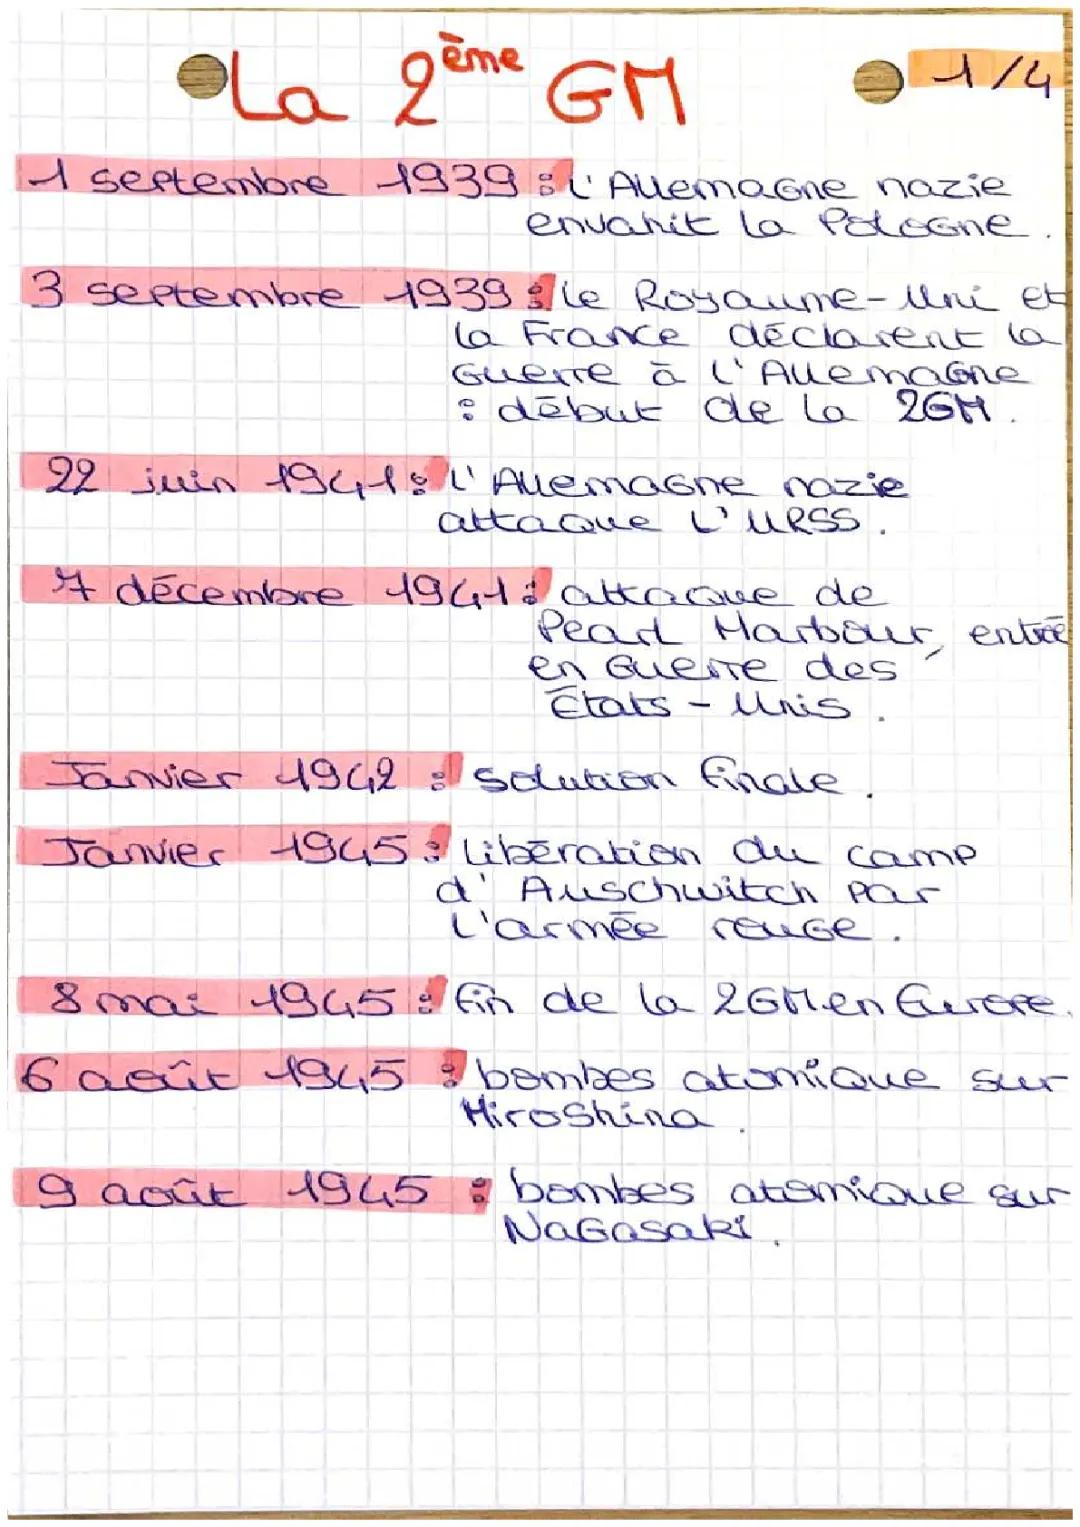 La 2ème GM
1/4
1 septembre 1939 : l'Allemagne nazie
envahit la Pologne.
3 septembre 1939 : le Royaume-Uni et
la France déclarent la
guerre à l'Allemagne
: début de la 2GM.
22 juin 1941 : l'Allemagne nazie
attaque l'URSS.
7 décembre 1941 : attaque de
Pearl Harbour, entrée
en guerre des
États-Unis.
Janvier 1942 : solution finale.
Janvier 1945 : libération du camp
d'Auschwitch par
l'armée rouge.
8 mai 1945 : fin de la 2GM en Europe.
6 août 1945 : bombes atomique sur
Hiroshina.
9 août 1945 : bombes atomique sur
Nagasaki.